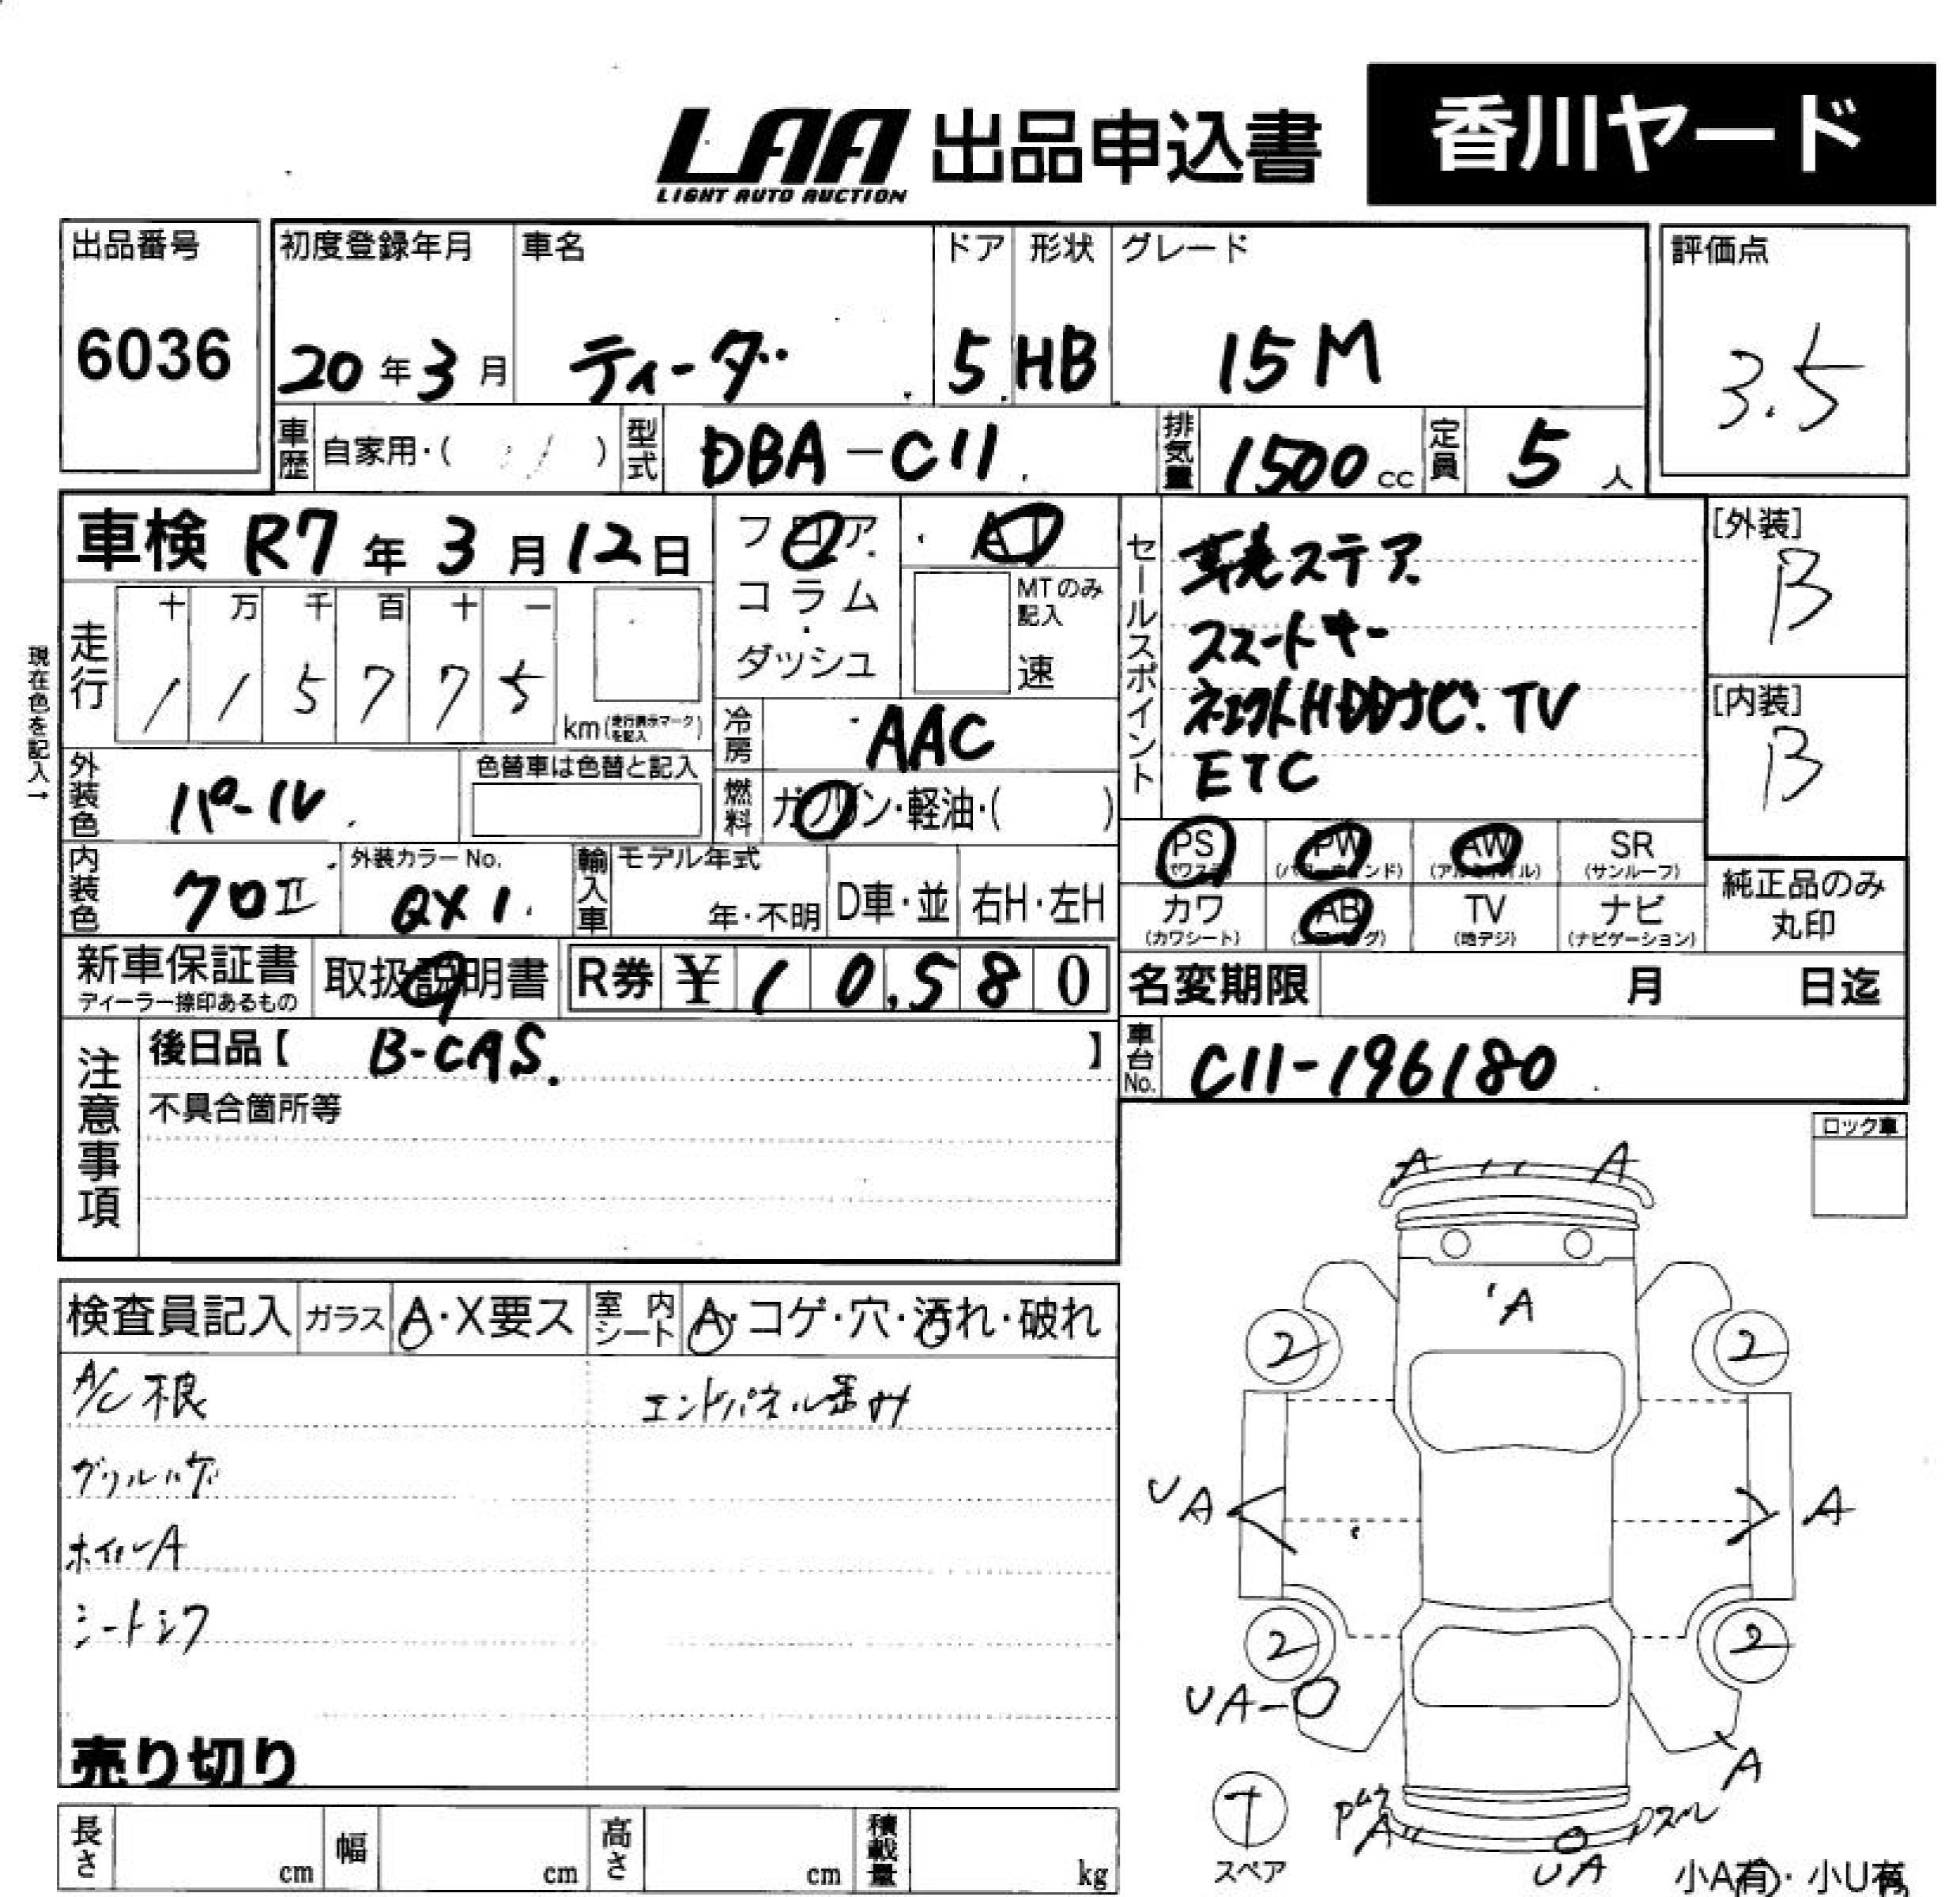 LAA 出品申込書 香川ヤード
LIGHT AUTO AUCTION
出品番号 初度登録年月 車名 ドア 形状 グレード 評価点
6036 20年3月 ティーダ 5 HB 15M 3.5
車歴 自家用・( ) 型式 DBA-C11 排気量 1500cc 定員 5人
車検 R7年3月12日 フロア AT
コラム・ MTのみ記入
ダッシュ 速
現在色を記入→
走行 十 万 千 百 十 一
1 1 5 7 7 5 km(走行表示マークを記入)
冷房 AAC
外装色 パール 色替車は色替と記入
燃料 ガソリン・軽油・( )
内装色 クロII 外装カラーNo. QX1 輸入車 モデル年式 年・不明 D車・並 右H・左H
セールスポイント
革巻ステア
スマートキー
HDDナビ.TV
ETC
[外装]
B
[内装]
B
PS(パワステ) PW(パワーウィンド) AW(アルミホイル) SR(サンルーフ)
カワ(カワシート) AB(エアバッグ) TV(地デジ) ナビ(ナビゲーション)
純正品のみ
丸印
新車保証書 取扱説明書 R券 ¥10,580
ディーラー捺印あるもの
名変期限 月 日迄
注意事項
後日品【 B-CAS. 】
不具合箇所等
車台No. C11-196180
ロック車
検査員記入 ガラス A・X要ス 室内シート A・コゲ・穴・汚れ・破れ
A/C 根 エンドパネル歪み
グリルハゲ
ホイルA
シートシワ
売り切り
A A
A
2 2
UA A
2 2
UA
A
A UA
スペア
小A有・小U有
長さ cm 幅 cm 高さ cm 積載量 kg